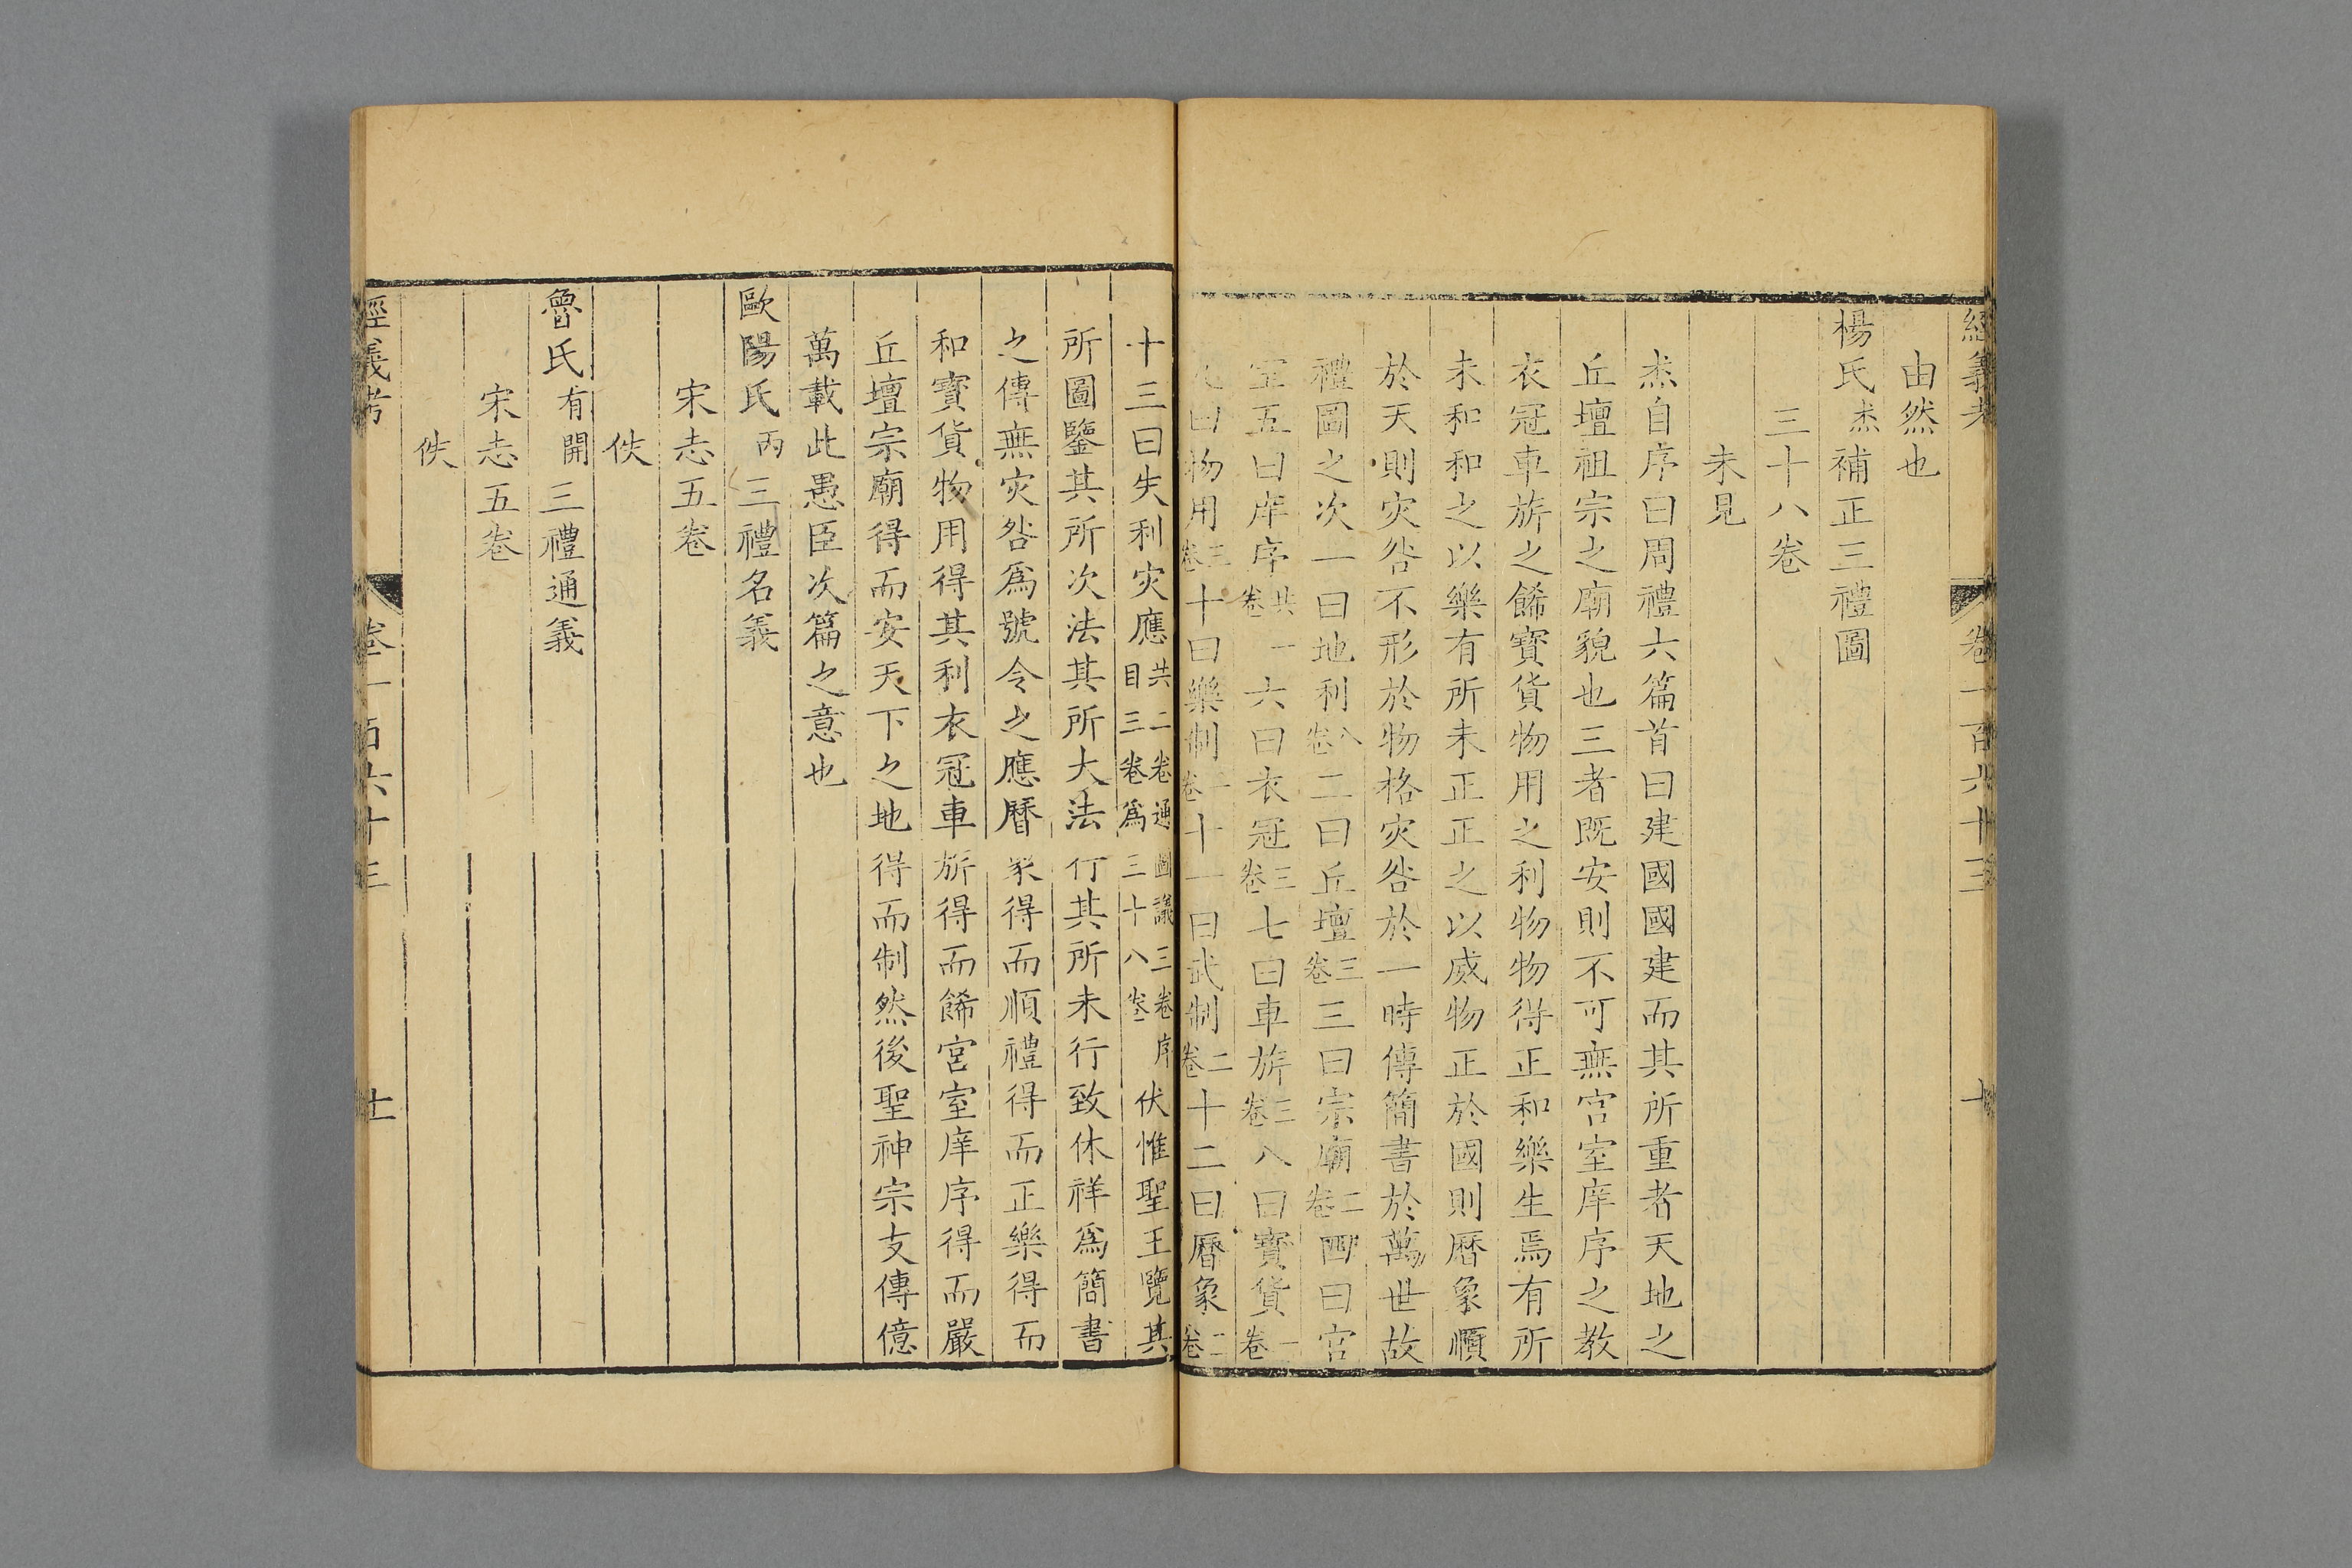 經義考
卷一百六十三
十
由然也
楊氏杰補正三禮圖
三十八卷
未見
杰自序曰周禮六篇首曰建國國建而其所重者天地之
丘壇祖宗之廟貌也三者既安則不可無宮室庠序之教
衣冠車旂之餙寶貨物用之利物物得正和樂生焉有所
未和和之以樂有所未正正之以威物正於國則曆象順
於天則灾咎不形於物格灾咎於一時傳簡書於萬世故
禮圖之次一曰地利八卷二曰丘壇三卷三曰宗廟二卷四曰宮
室五曰庠序共一卷一六曰衣冠三卷七曰車旂三卷八曰寶貨一卷
九曰物用三卷十曰樂制一卷十一曰武制二卷十二曰曆象二卷
十三曰失利灾應共二卷通圖議三卷序目三卷爲三十八卷伏惟聖王覽其
所圖鑒其所次法其所大法行其所未行致休祥爲簡書
之傳無灾咎爲號令之應曆象得而順禮得而正樂得而
和寶貨物用得其利衣冠車旂得而餙宮室庠序得而嚴
丘壇宗廟得而安天下之地得而制然後聖神宗支傳億
萬載此愚臣次篇之意也
歐陽氏丙三禮名義
宋志五卷
佚
魯氏有開三禮通義
宋志五卷
佚
經義考
卷一百六十三
十一